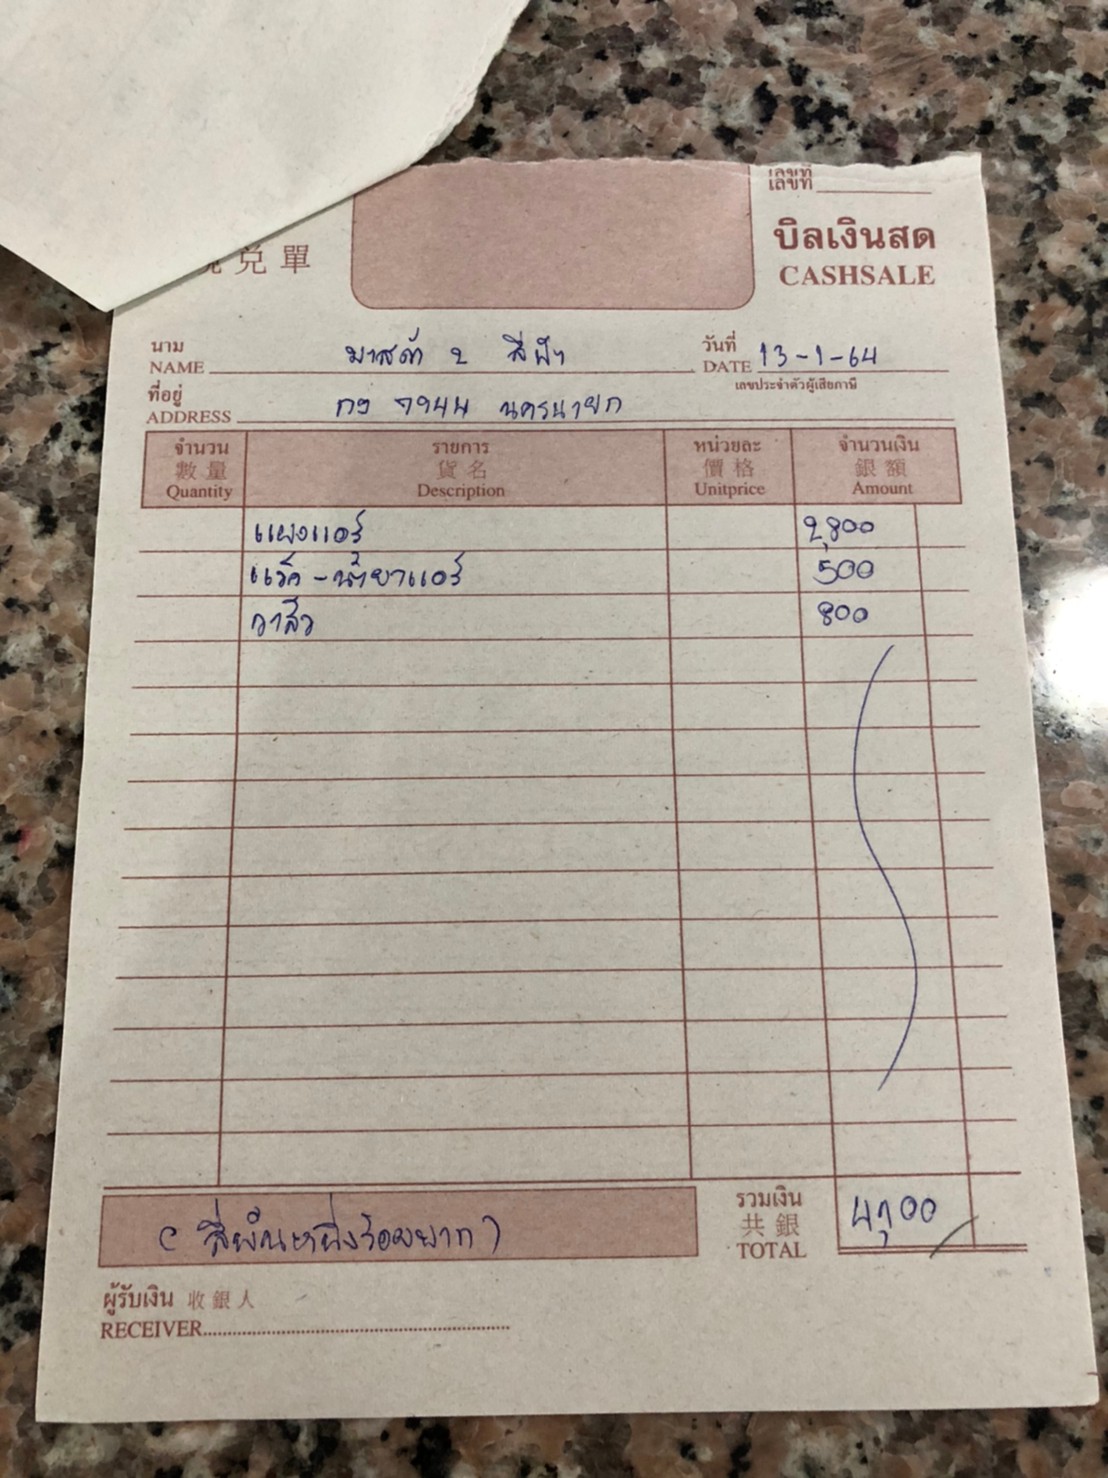 เลขที่
兑單
บิลเงินสด
CASHSALE
นาม มาสด้า 2 สีฟ้า วันที่
NAME DATE 13-1-64
เลขประจำตัวผู้เสียภาษี
ที่อยู่ กง 7944 นครนายก
ADDRESS
จำนวน รายการ หน่วยละ จำนวนเงิน
數量 貨名 價格 銀額
Quantity Description Unitprice Amount
แผงแอร์ 2,800
แว๊ค - น้ำยาแอร์ 500
วาล์ว 800
รวมเงิน
共銀 4,100
TOTAL
(สี่พันหนึ่งร้อยบาท)
ผู้รับเงิน 收銀人
RECEIVER